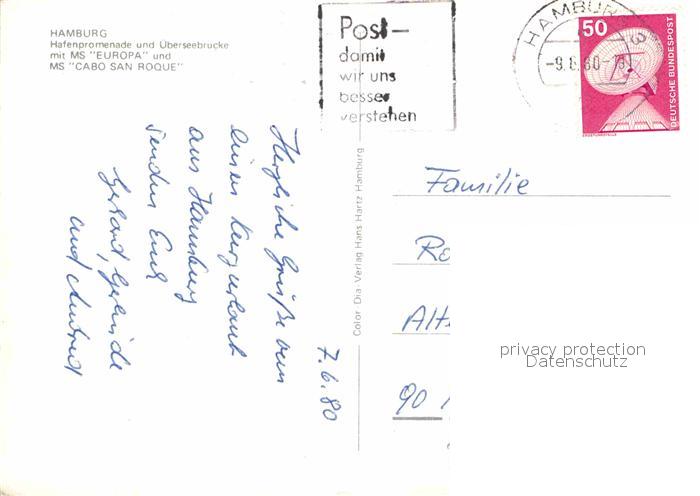 HAMBURG
Hafenpromenade und Überseebrücke
mit MS "EUROPA" und
MS "CABO SAN ROQUE"
Post—
damit
wir uns
besser
verstehen
HAMBURG
-9.6.80-18
50
DEUTSCHE BUNDESPOST
ERDEFUNKSTELLE
7.6.80
Herzliche Grüße von
einem Kurzurlaub
aus Hamburg
senden Euch
Gerhard, Gerlinde
und
Color Dia-Verlag Hans Hartz Hamburg
Familie
Re
Alt
90
privacy protection
Datenschutz